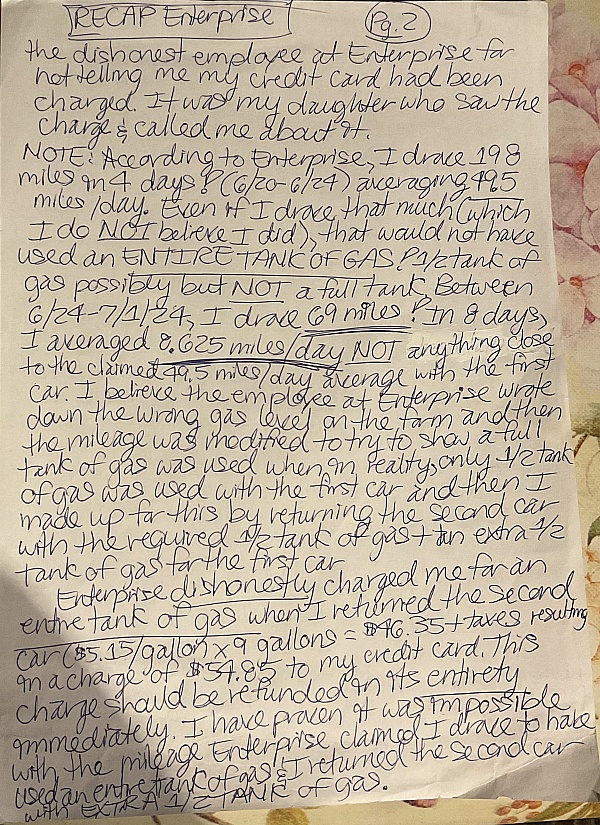 RECAP Enterprise
Pg. 2
the dishonest employee at Enterprise for
not telling me my credit card had been
charged. It was my daughter who saw the
charge & called me about it.
NOTE: According to Enterprise, I drove 198
miles in 4 days? (6/20-6/24) averaging 49.5
miles/day. Even if I drove that much (which
I do NOT believe I did), that would not have
used an ENTIRE TANK OF GAS? 1/2 tank of
gas possibly but NOT a full tank. Between
6/24-7/1/24, I drove 69 miles? In 8 days,
I averaged 8.625 miles/day NOT anything close
to the claimed 49.5 miles/day average with the first
car. I believe the employee at Enterprise wrote
down the wrong gas level on the form and then
the mileage was modified to try to show a full
tank of gas was used when, in reality, only 1/2 tank
of gas was used with the first car and then I
made up for this by returning the second car
with the required 1/2 tank of gas + an extra 1/2
tank of gas for the first car.
Enterprise dishonestly charged me for an
entire tank of gas when I returned the second
car ($5.15/gallon x 9 gallons = $46.35 + taxes resulting
in a charge of $54.85 to my credit card. This
charge should be refunded in its entirety
immediately. I have proven it was impossible
with the mileage Enterprise claimed I drove to have
used an entire tank of gas & I returned the second car
with EXTRA 1/2 TANK of gas.